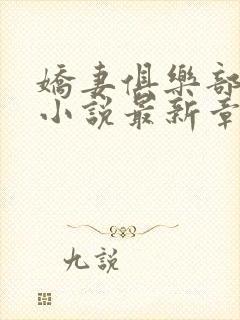 嬌妻俱樂部
小說最新章
九說